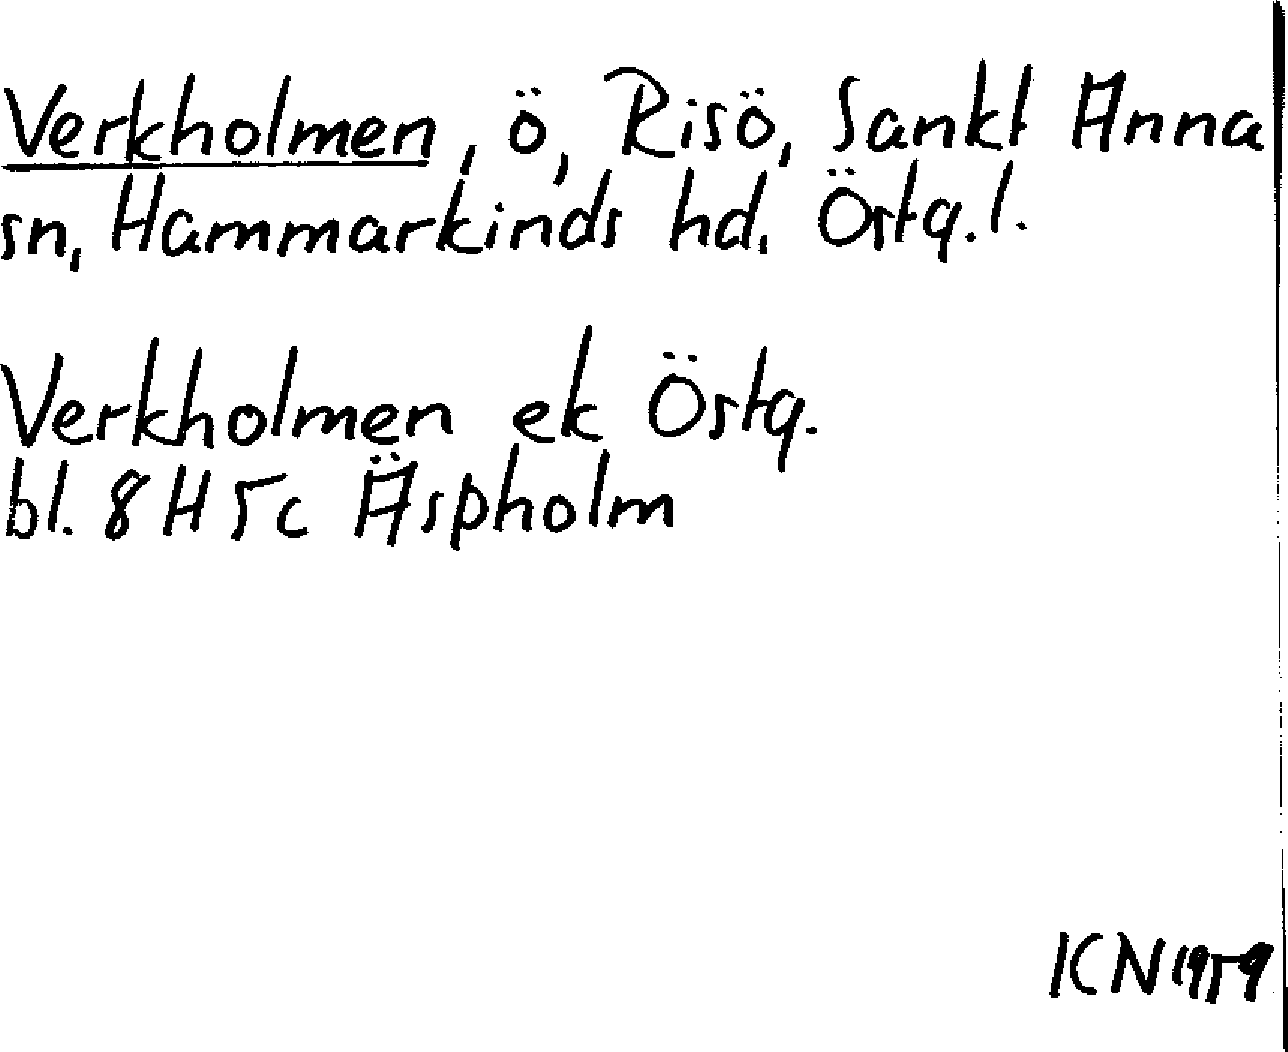 Verkholmen, ö, Risö, Sankt Anna
sn, Hammarkinds hd. Östg. l.
Verkholmen ek Östg.
bl. 8 H 5c Äspholm
ICN 1959